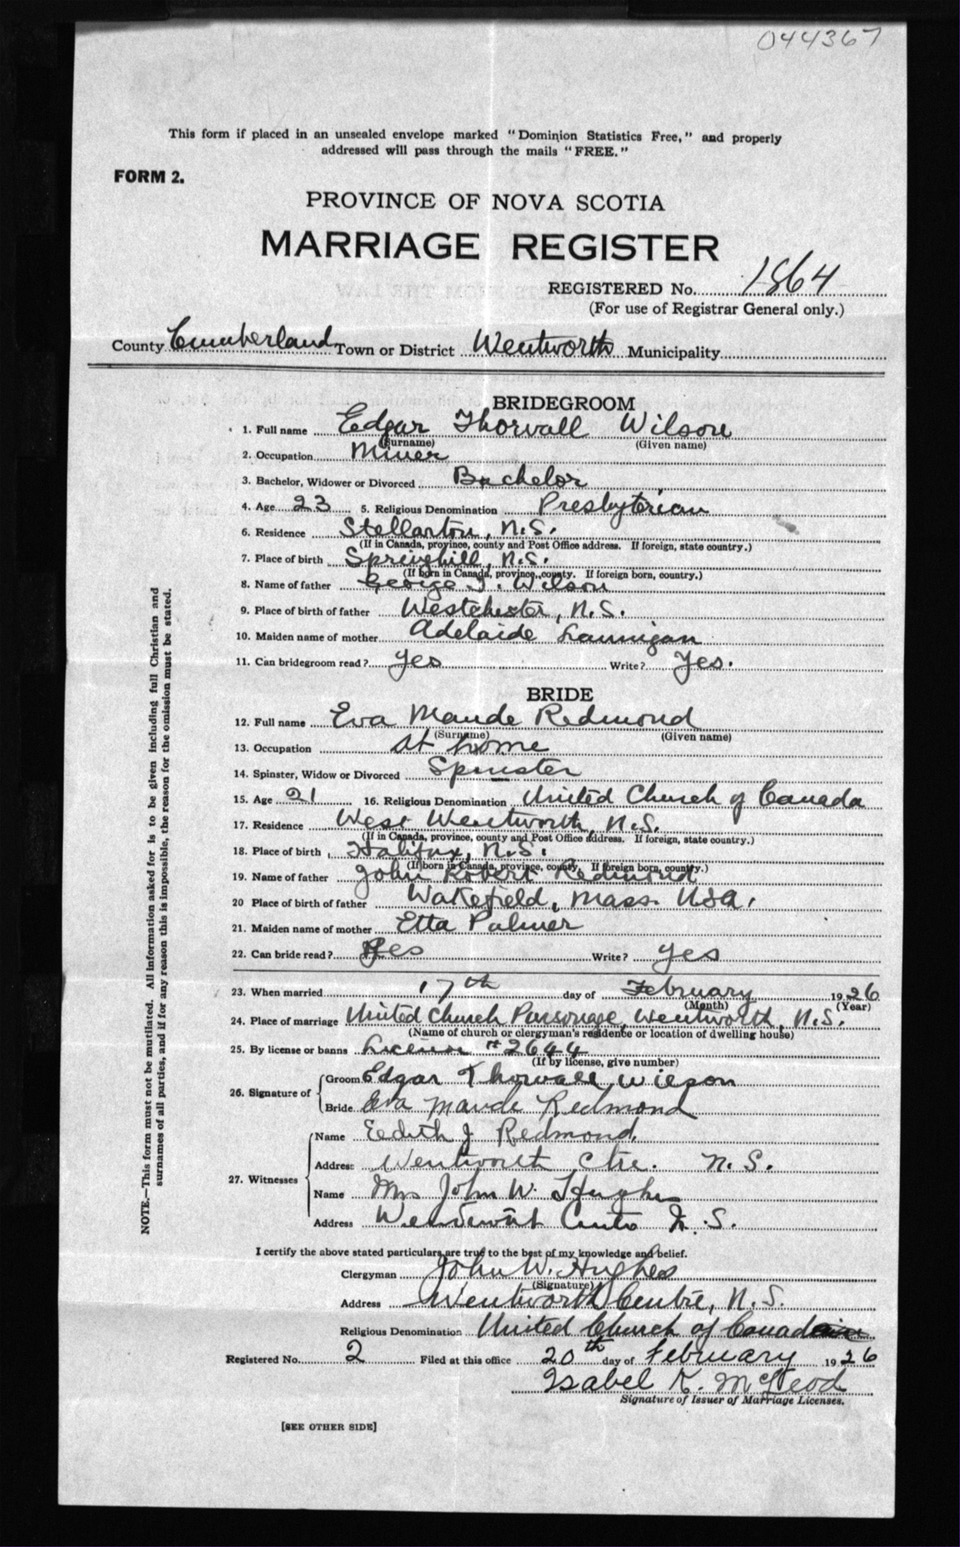 044367
This form if placed in an unsealed envelope marked "Dominion Statistics Free," and properly
addressed will pass through the mails "FREE."
FORM 2.
PROVINCE OF NOVA SCOTIA
MARRIAGE REGISTER
REGISTERED No. 1864
(For use of Registrar General only.)
County Cumberland Town or District Wentworth Municipality
BRIDEGROOM
1. Full name Edgar Thorvall Wilson
(Surname) (Given name)
2. Occupation Miner
3. Bachelor, Widower or Divorced Bachelor
4. Age 23 5. Religious Denomination Presbyterian
6. Residence Stellarton, N.S.
(If in Canada, province, county and Post Office address. If foreign, state country.)
7. Place of birth Springhill, N.S.
(If born in Canada, province, county. If foreign born, country.)
8. Name of father George T. Wilson
9. Place of birth of father Westchester, N.S.
10. Maiden name of mother Adelaide Lannigan
11. Can bridegroom read? yes Write? Yes.
BRIDE
12. Full name Eva Maude Redmond
(Surname) (Given name)
13. Occupation at home
14. Spinster, Widow or Divorced Spinster
15. Age 21 16. Religious Denomination United Church of Canada
17. Residence West Wentworth, N.S.
(If in Canada, province, county and Post Office address. If foreign, state country.)
18. Place of birth Halifax, N.S.
(If born in Canada, province, county. If foreign born, country.)
19. Name of father John Robert Redmond
20 Place of birth of father Wakefield, Mass. USA.
21. Maiden name of mother Etta Palmer
22. Can bride read? Yes Write? yes
23. When married 17th day of February 1926
(Month) (Year)
24. Place of marriage United Church Parsonage, Wentworth, N.S.
(Name of church or clergyman's residence or location of dwelling house)
25. By license or banns License #2644
(If by license, give number)
26. Signature of Groom Edgar Thorvall Wilson
Bride Eva Maude Redmond
27. Witnesses Name Eedith J Redmond.
Address Wentworth Ctre. N.S.
Name Mrs John W. Hughes
Address Wentworth Centre N.S.
I certify the above stated particulars are true to the best of my knowledge and belief.
Clergyman John W. Hughes
(Signature)
Address Wentworth Centre, N.S.
Religious Denomination United Church of Canada
Registered No. 2 Filed at this office 20th day of February 1926
Isabel K. McLeod
Signature of Issuer of Marriage Licenses.
[SEE OTHER SIDE]
NOTE.—This form must not be mutilated. All information asked for is to be given including full Christian and
surnames of all parties, and if for any reason this is impossible, the reason for the omission must be stated.